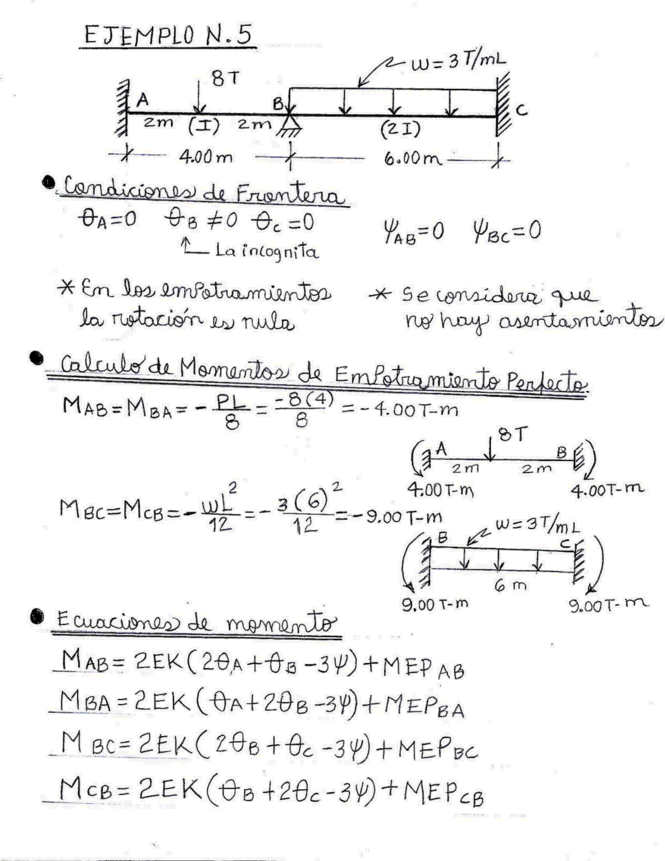 EJEMPLO N.5
W=3T/mL
8T
A B C
2m (I) 2m (2I)
4.00m 6.00m
Condiciones de Frontera
θA=0 θB≠0 θC=0 ψAB=0 ψBC=0
La incognita
* En los empotramientos
la rotación es nula
* Se considera que
no hay asentamientos
Calculo de Momentos de Empotramiento Perfecto
MAB=MBA=-PL/8=-8(4)/8=-4.00T-m
8T
A B
2m 2m
4.00T-m 4.00T-m
MBC=MCB=-wL²/12=-3(6)²/12=-9.00T-m
W=3T/mL
B C
6m
9.00T-m 9.00T-m
Ecuaciones de momento
MAB=2EK(2θA+θB-3ψ)+MEPAB
MBA=2EK(θA+2θB-3ψ)+MEPBA
MBC=2EK(2θB+θC-3ψ)+MEPBC
MCB=2EK(θB+2θC-3ψ)+MEPCB